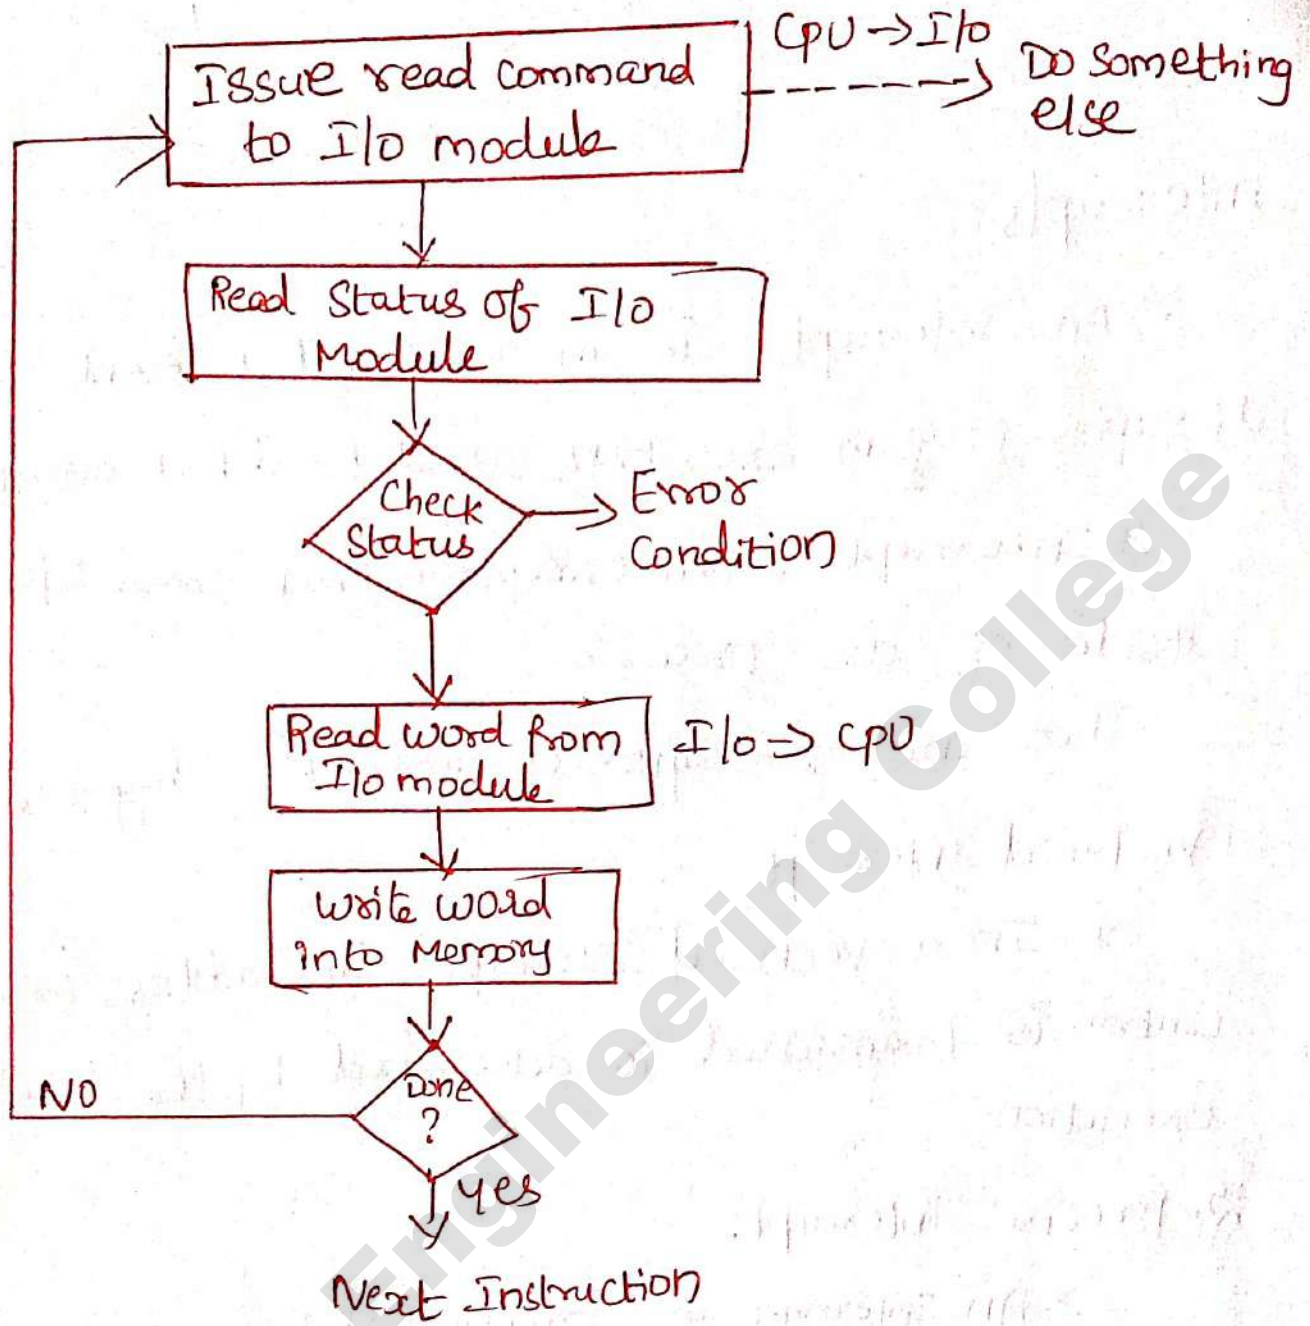 Issue read command
to I/O module
CPU → I/O
Do Something
else
Read Status of I/O
Module
Check
Status
Error
Condition
Read word from
I/O module
I/O → CPU
Write word
into Memory
Done
?
NO
Yes
Next Instruction
Engineering College